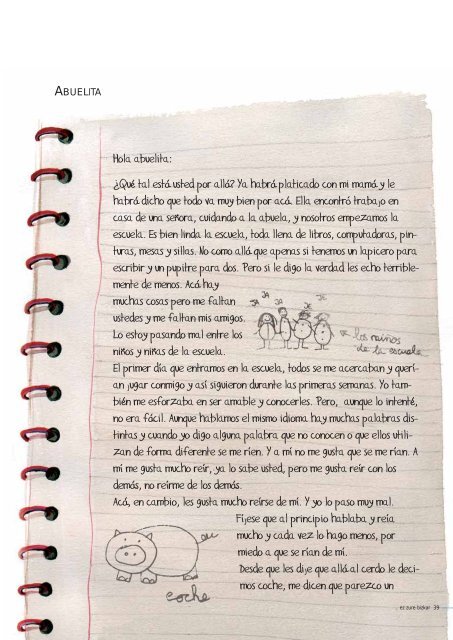 ABUELITA
Hola abuelita:
¿Qué tal está usted por allá? Ya habrá platicado con mi mamá y le
habrá dicho que todo va muy bien por acá. Ella encontró trabajo en
casa de una señora, cuidando a la abuela, y nosotros empezamos la
escuela. Es bien linda la escuela, toda llena de libros, computadoras, pin-
turas, mesas y sillas. No como allá que apenas si tenemos un lapicero para
escribir y un pupitre para dos. Pero si le digo la verdad les echo terrible-
mente de menos. Acá hay
muchas cosas pero me faltan
ustedes y me faltan mis amigos.
Lo estoy pasando mal entre los
niños y niñas de la escuela.
JA JA JA JE
los niños
de la escuela
El primer día que entramos en la escuela, todos se me acercaban y querí-
an jugar conmigo y así siguieron durante las primeras semanas. Yo tam-
bién me esforzaba en ser amable y conocerles. Pero, aunque lo intenté,
no era fácil. Aunque hablamos el mismo idioma hay muchas palabras dis-
tintas y cuando yo digo alguna palabra que no conocen o que ellos utili-
zan de forma diferente se me ríen. Y a mí no me gusta que se me rían. A
mí me gusta mucho reír, ya lo sabe usted, pero me gusta reír con los
demás, no reírme de los demás.
Acá, en cambio, les gusta mucho reírse de mí. Y yo lo paso muy mal.
Fíjese que al principio hablaba y reía
mucho y cada vez lo hago menos, por
miedo a que se rían de mí.
Desde que les dije que allá al cerdo le deci-
mos coche, me dicen que parezco un
coche
ez zure bizkar 39